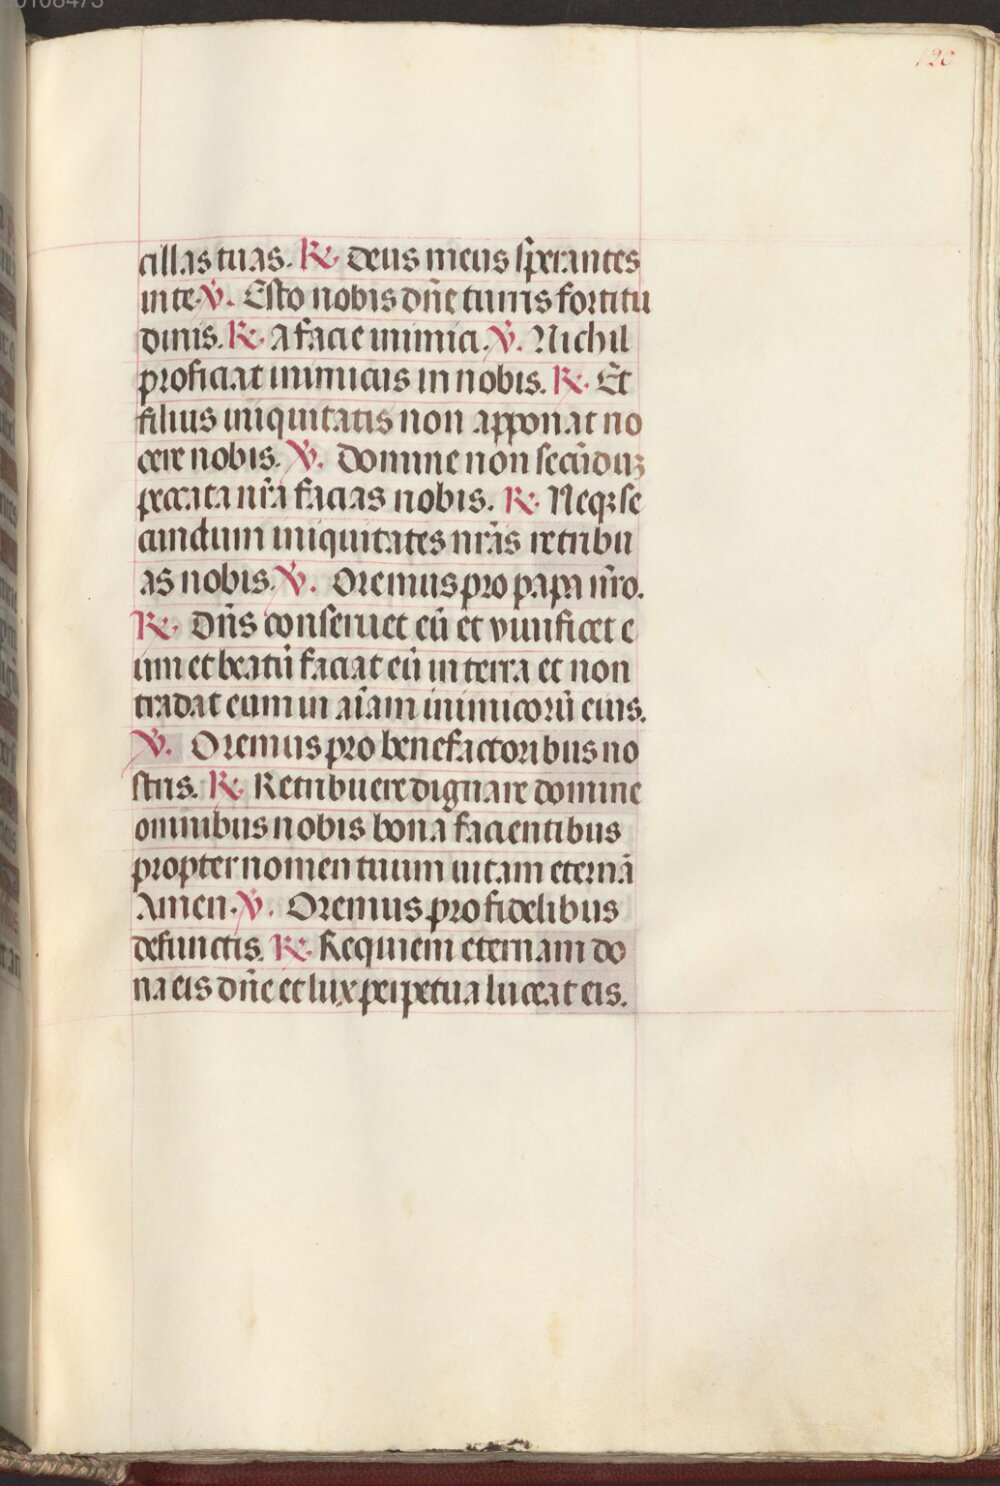 120
cillas tuas. ℟. deus meus sperantes
in te. ℣. Esto nobis dn̄e turris fortitu
dinis. ℟. A facie inimici. ℣. Nichil
proficiat inimicus in nobis. ℟. Et
filius iniquitatis non apponat no
cere nobis. ℣. Domine non secūduꝫ
peccata nr̄a facias nobis. ℟. Neqꝫ se
cundum iniquitates nr̄as retribu
as nobis. ℣. Oremus pro papa nr̄o.
℟. Dn̄s conseruet eū et viuificet e
um et beatū faciat eū in terra et non
tradat eum in aīam inimicorū eius.
℣. Oremus pro benefactoribus no
stris. ℟. Retribuere dignare domine
omnibus nobis bona facientibus
propter nomen tuum uitam eternā
Amen. ℣. Oremus pro fidelibus
defunctis. ℟. Requiem eternam do
na eis dn̄e et lux perpetua luceat eis.